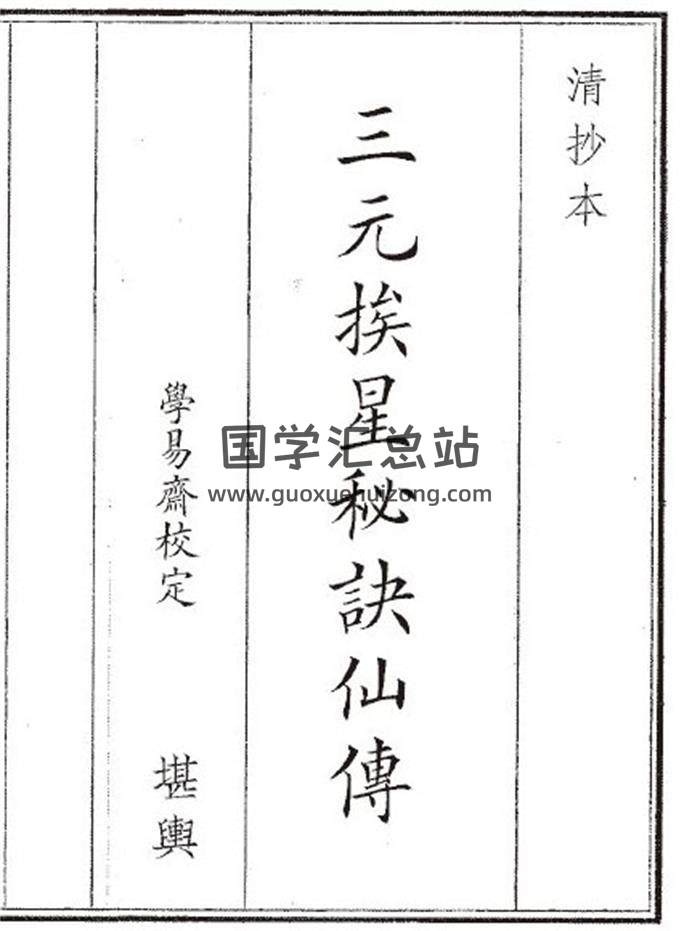 清抄本
三元挨星秘訣仙傳
學易齋校定
堪輿
国学汇总站
www.guoxuehuizong.com